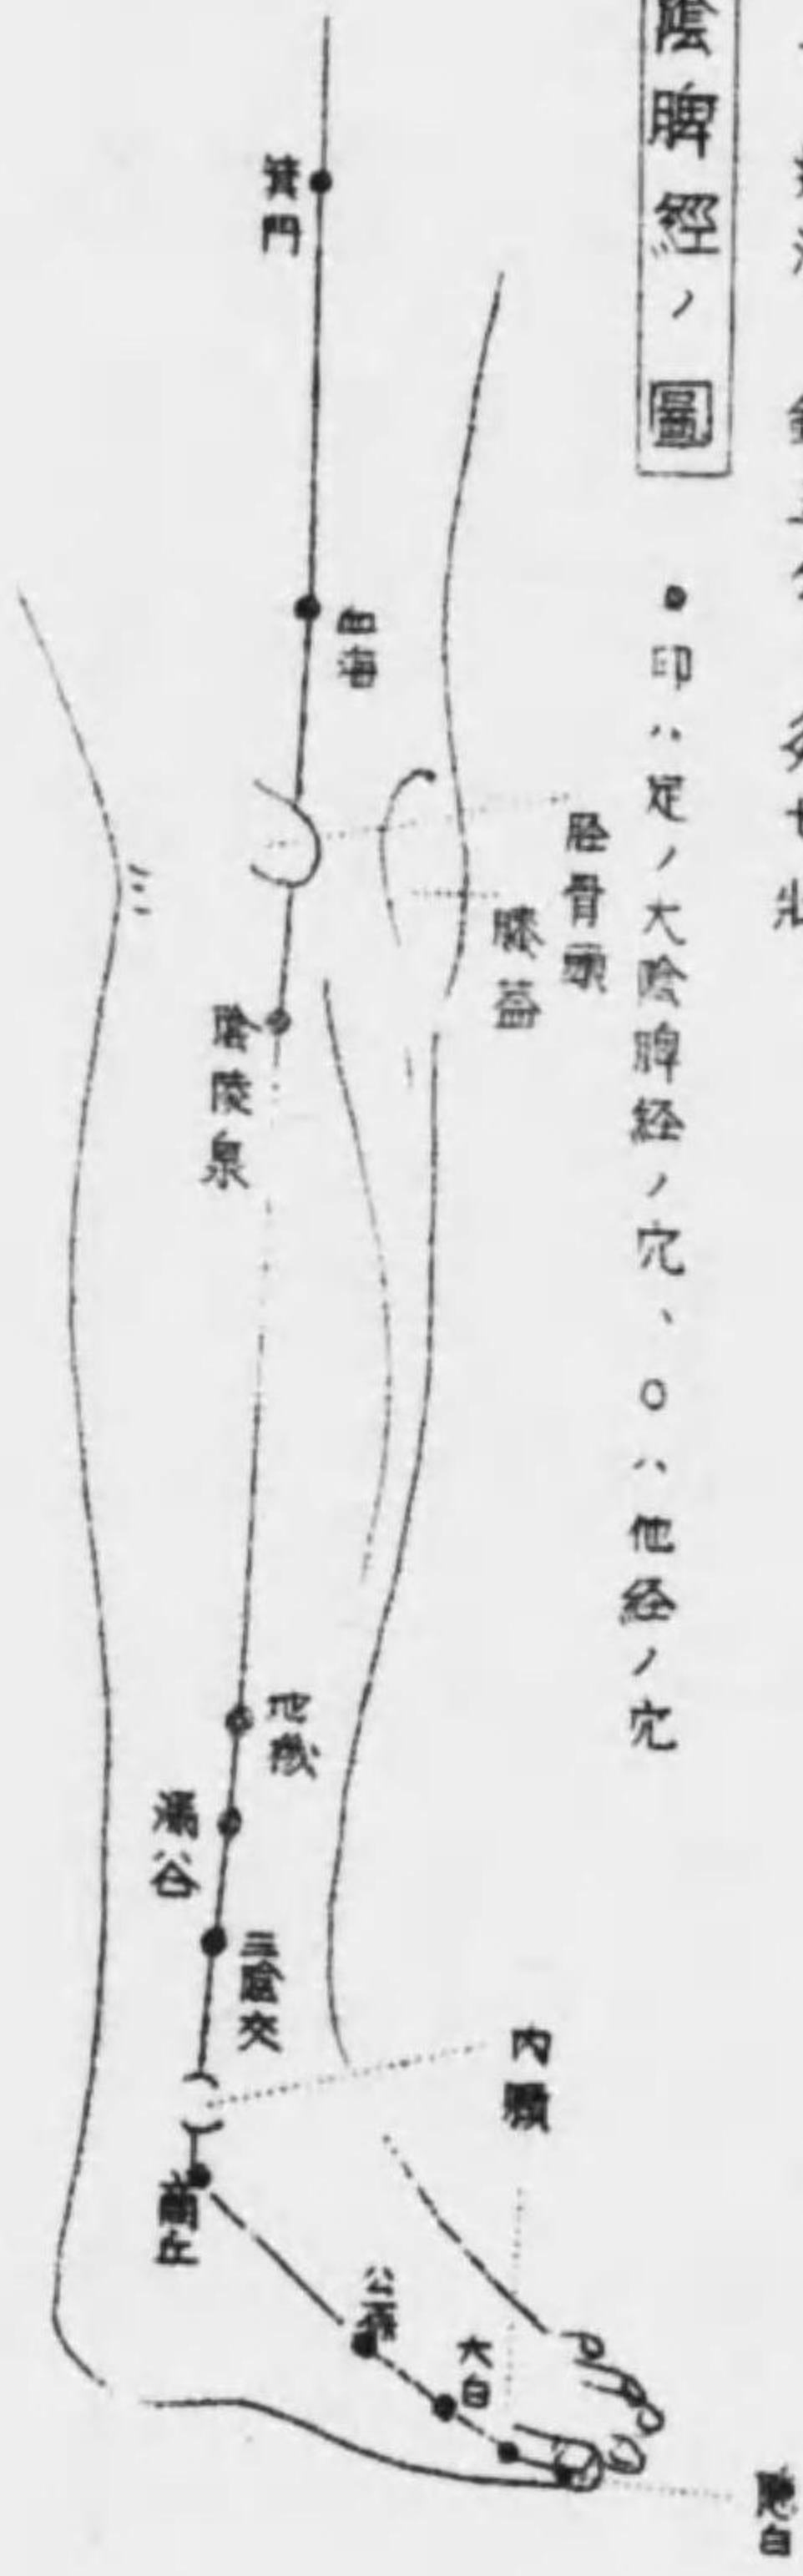 陰脾經ノ圖
●印ハ足ノ大陰脾経ノ穴、○ハ他経ノ穴
箕門
血海
脛骨頭
膝蓋
陰陵泉
地機
漏谷
三陰交
内顆
商丘
公孫
大白
隠白